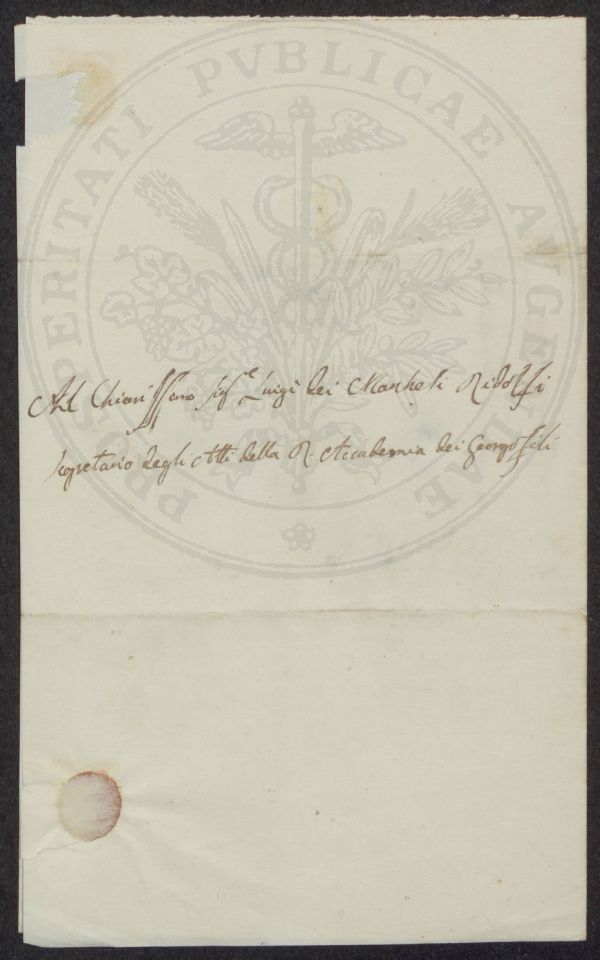 PROSPERITATI PVBLICAE AVGENDAE
Al Chiarissimo Sigre Luigi dei Marchesi Ridolfi
Segretario degli Atti della R. Accademia dei Georgofili